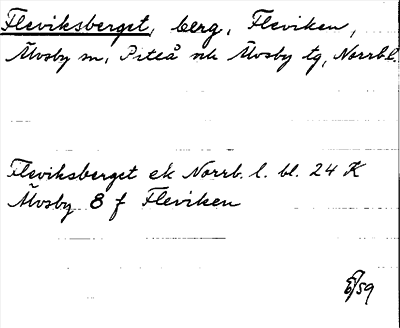 Fleviksberget, berg, Fleviken,
Älvsby sn, Piteå nk Älvsby tg, Norrb.l.
Fleviksberget ek Norrb. l. bl. 24 K
Älvsby 8 f Fleviken
/59